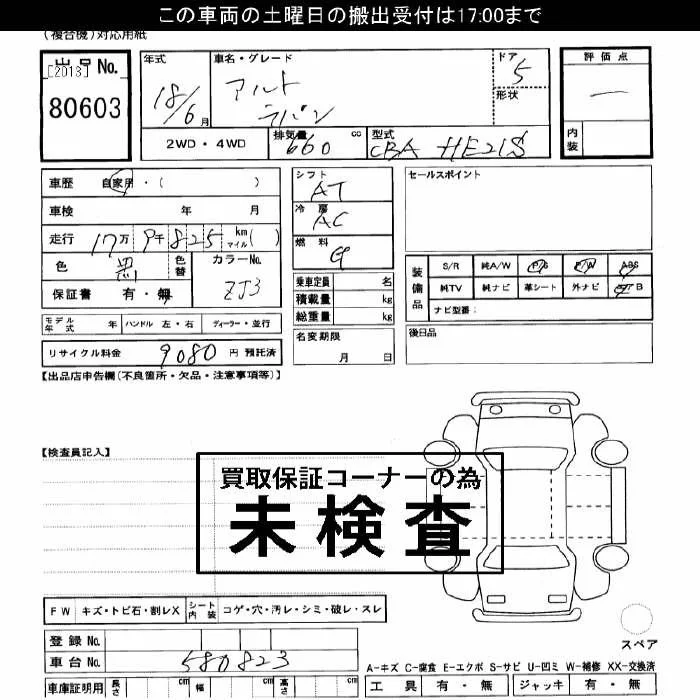 この車両の土曜日の搬出受付は17:00まで
(複合機)対応用紙
出品 No.
[2013]
80603
年式
18/6月
車名・グレード
アルト
ラパン
ドア
5
形状
評価点
―
内装
2WD・4WD
排気量 660 cc
型式 CBA HE21S
車歴 自家用・( )
車検 年 月
走行 17万9千825 km マイル( )
色 黒 色替
カラーNo. ZJ3
保証書 有・無
シフト AT
冷房 AC
燃料 G
乗車定員 名
積載量 kg
総重量 kg
セールスポイント
装備品
S/R 純A/W P/S P/W ABS
純TV 純ナビ 革シート 外ナビ エアB
ナビ型番:
モデル年式 年 ハンドル 左・右 ディーラー・並行
リサイクル料金 9080 円 預託済
名変期限
月 日
後日品
【出品店申告欄(不良箇所・欠品・注意事項等)】
【検査員記入】
買取保証コーナーの為
未検査
FW キズ・トビ石・割レX シート内装 コゲ・穴・汚レ・シミ・破レ・スレ
登録 No.
車台 No. 580823
車庫証明用 長さ cm 幅 cm 高さ cm
スペア
A-キズ C-腐食 E-エクボ S-サビ U-凹ミ W-補修 XX-交換済
工具 有・無 ジャッキ 有・無